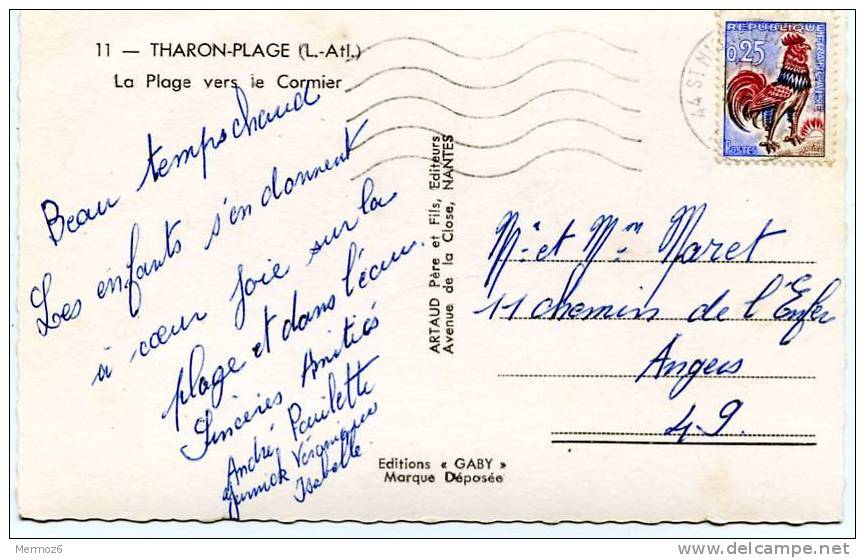 11 — THARON-PLAGE (L.-Atl.)
La Plage vers le Cormier
Beau temps chaud
Les enfants s'en donnent
à cœur joie sur la
plage et dans l'écume.
Sincères Amitiés
André Paulette
Yannick Véronique
Isabelle
ARTAUD Père et Fils, Editeurs
Avenue de la Close, NANTES
Editions « GABY »
Marque Déposée
44 ST MI
REPUBLIQUE FRANÇAISE
0,25
POSTES
Mr et Mm Maret
11 chemin de l'Enfer
Angers
49.
Mermoz26
http://www.delcampe.net